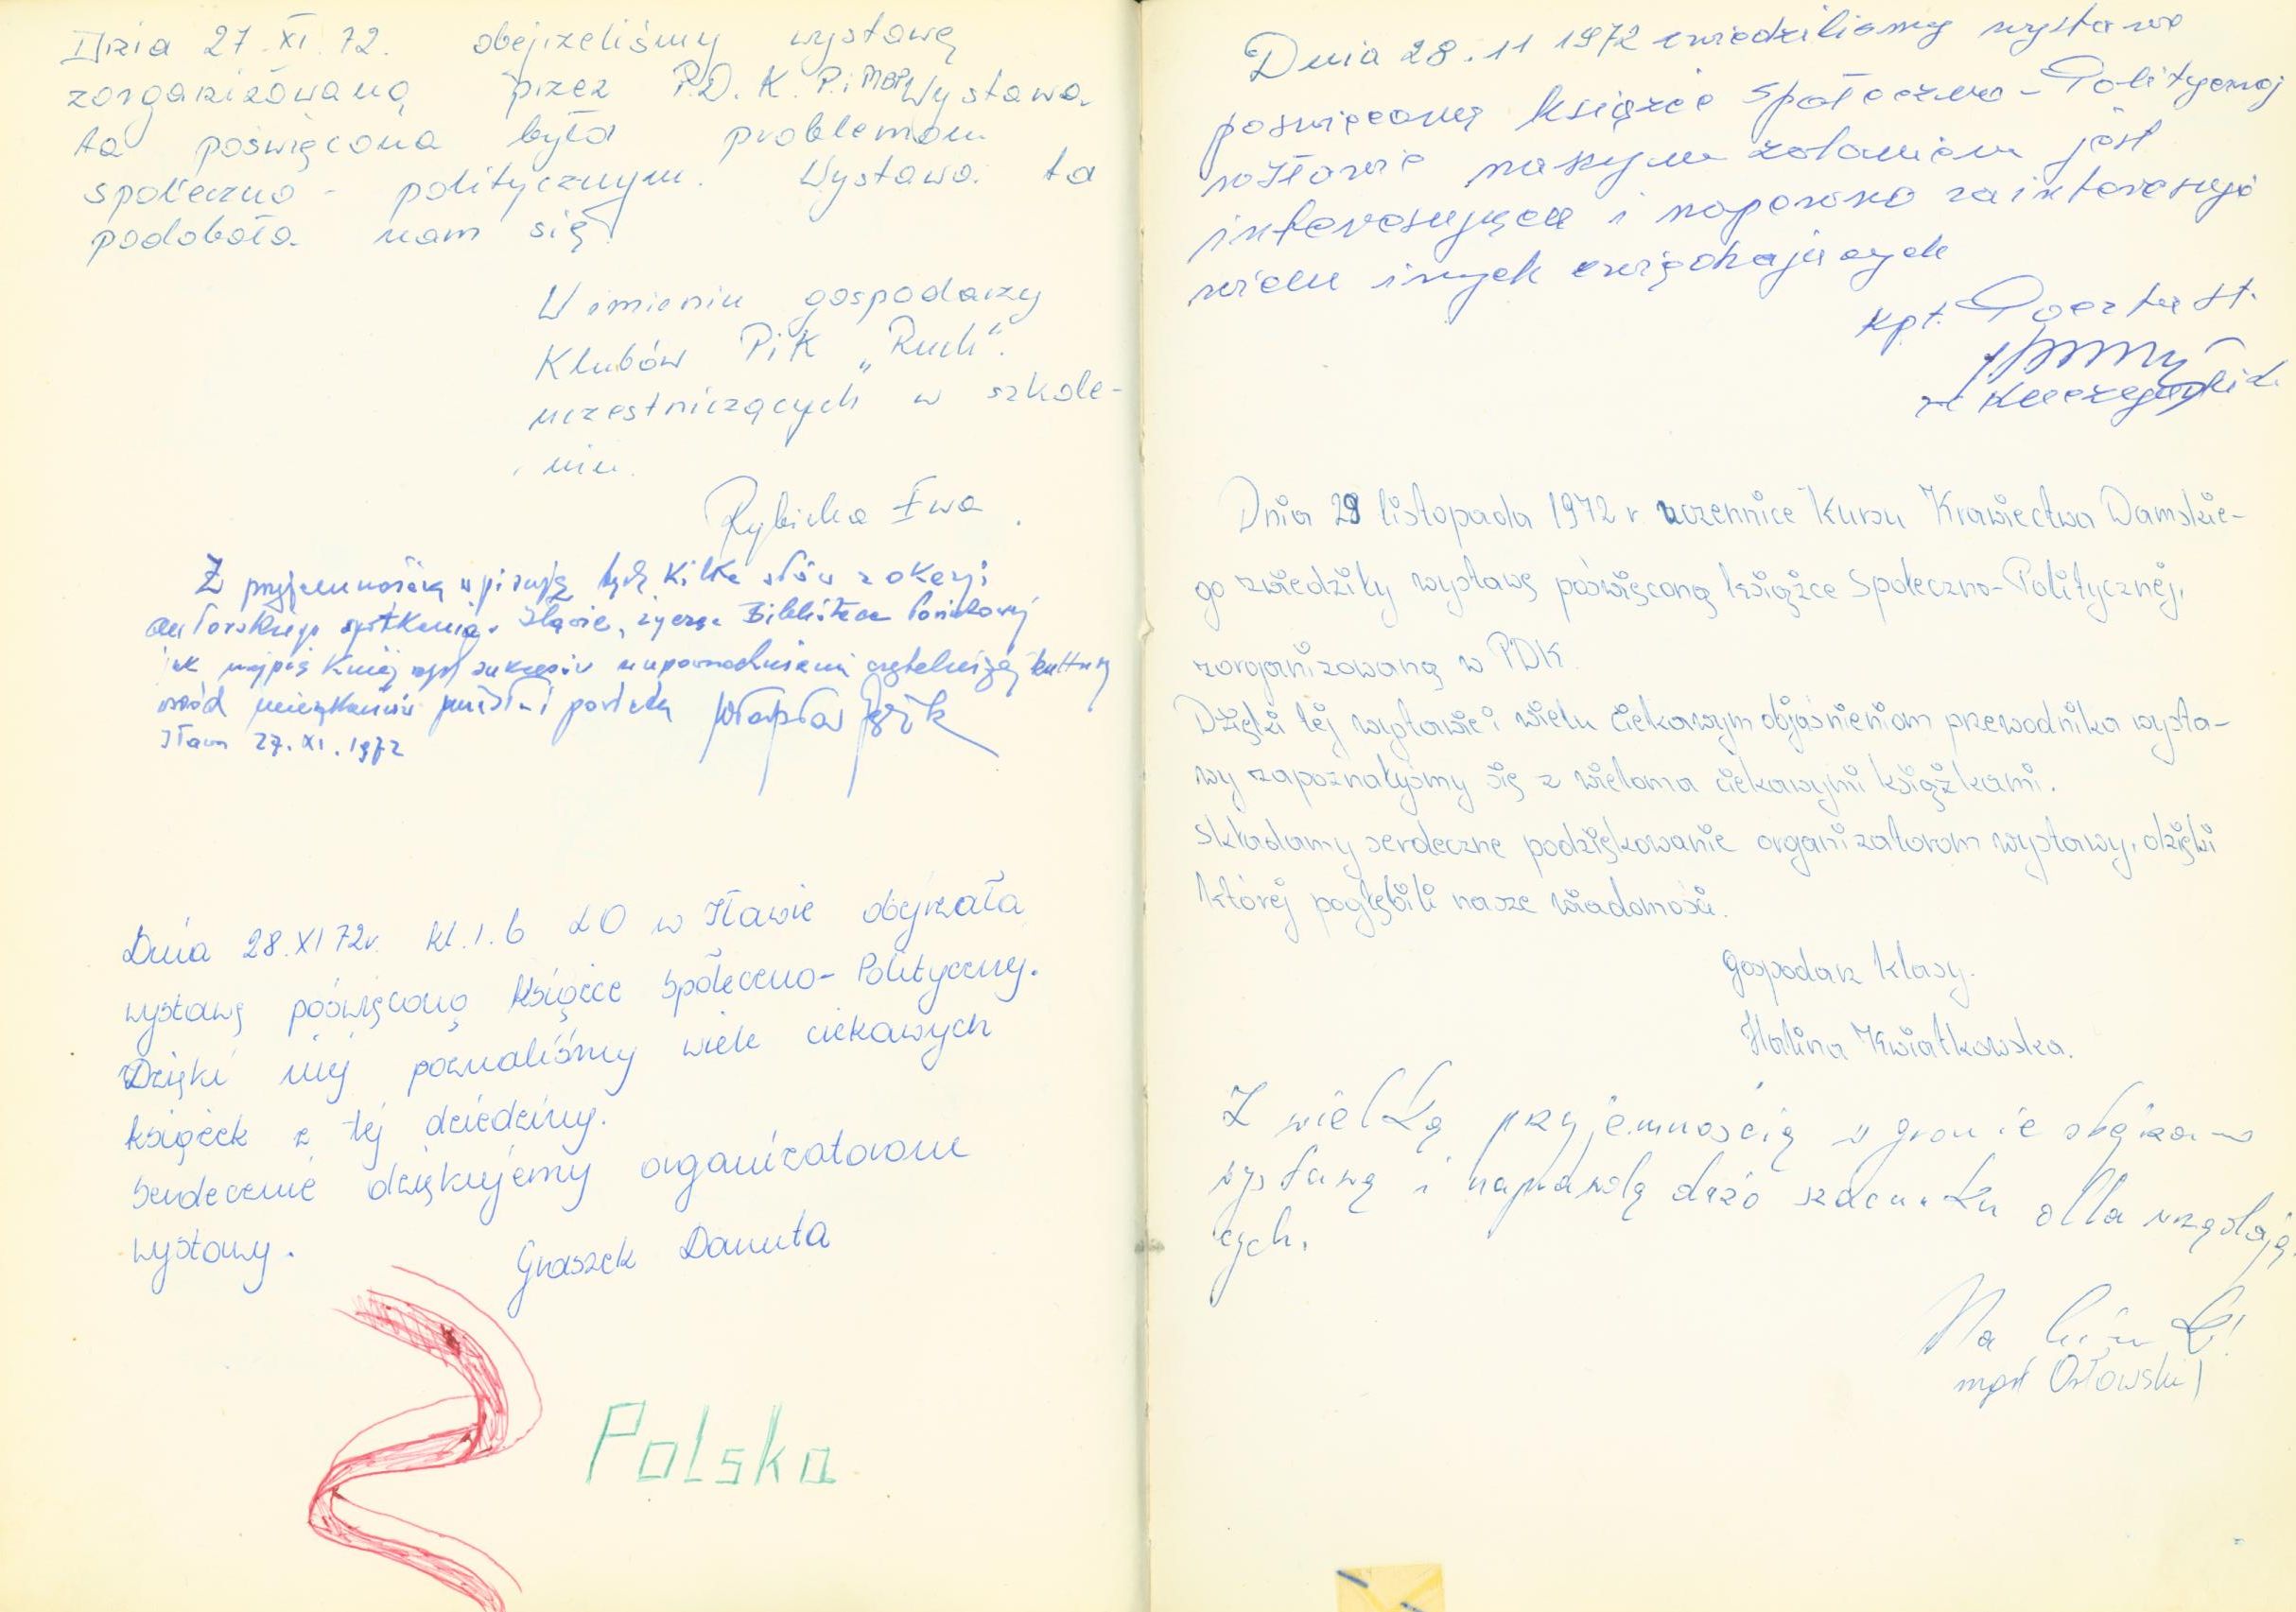 Dnia 27.XI.72. obejrzeliśmy wystawę
zorganizowaną przez P.D.K. P.i MBP Wystawa
ta poświęcona była problemom
społeczno - politycznym. Wystawa ta
podobała nam się.
W imieniu gospodarzy
Klubów PiK „Ruch”.
uczestniczących w szkole-
niu.
Rybicka Ewa.
Z przyjemnością wpisuję tych kilka słów z okazji
autorskiego spotkania. Iławie, życzę Bibliotece Powiatowej
jak najpiękniejszych sukcesów w upowszechnianiu czytelniczej kultury
wśród mieszkańców miasta i powiatu
Iława 27.XI.1972
Dnia 28.XI 72r. kl. I.b LO w Iławie obejrzała
wystawę poświęconą książce Społeczno-Politycznej.
Dzięki niej poznaliśmy wiele ciekawych
książek z tej dziedziny.
Serdecznie dziękujemy organizatorom
wystawy.
Graszek Danuta
Polska
Dnia 28.11 1972 zwiedziliśmy wystawe
poswięconą książce społeczno-Politycznej
naszym zdaniem jest
interesująca i napewno zainteresuje
wielu inych zwiędzających
kpt.
Dnia 29 listopada 1972 r. uczennice Kursu Krawiectwa Damskie-
go zwiedziły wystawę poświęconą książce Społeczno-Politycznej,
zorganizowaną w PDK.
Dzięki tej wystawie i wielu ciekawym objaśnieniom przewodnika wysta-
wy zapoznałyśmy się z wieloma ciekawymi książkami.
Składamy serdeczne podziękowanie organizatorom wystawy, dzięki
której pogłębili nasze wiadomości.
Gospodarz klasy.
Halina Kwiatkowska.
Z wielką przyjemnością w gronie
wystawę i naprawdę dużo szacunku dla
cych.
mgr Orłowski